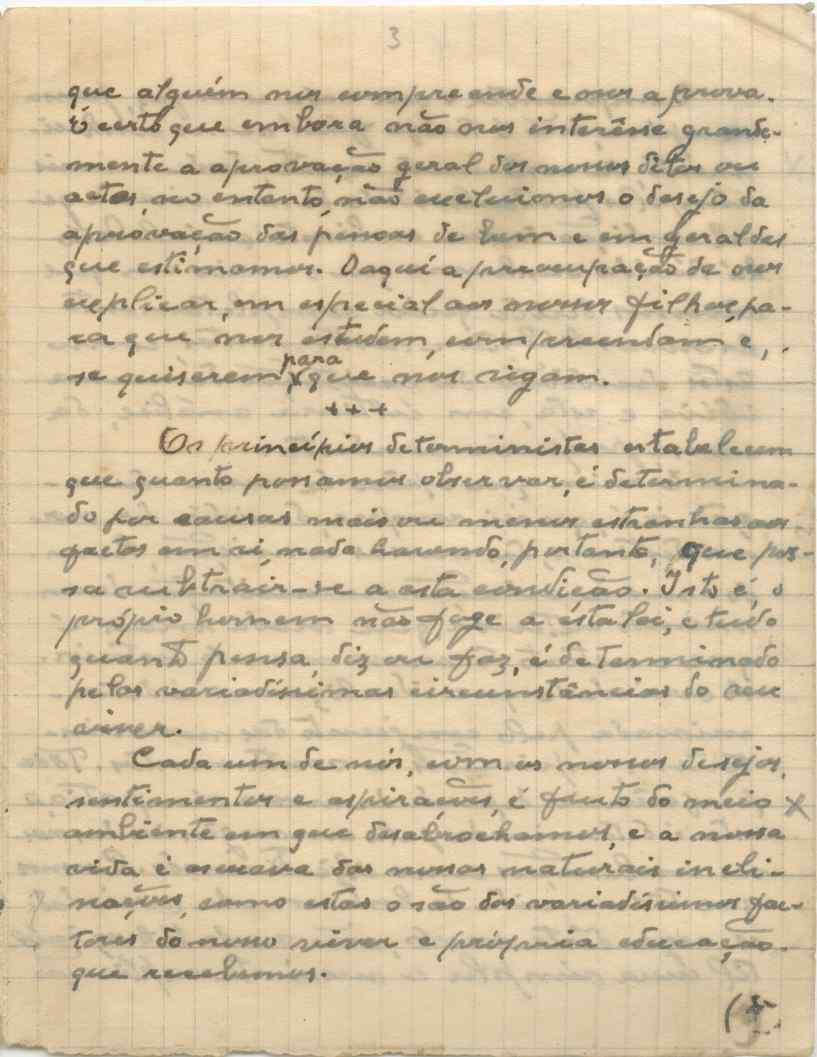 3
que alguém nos compreende e nos aprova.
É certo que embora não nos interêsse grande-
mente a aprovação geral dos nossos ditos ou
actos, no entento, não excluionos o desejo da
aprovação das pessoas de bem e em geral des
que estimamos. Daqui a preocupação de nos
explicar, em especial aos nossos filhos, pa-
ra que nos estudem, compreendam e,
se quiserem para que nos sigam.
+++
Os princípios deterministas estabelecem
que quanto possamos observar, é determina-
do por causas mais ou menos estranhas aos
factos em si, nada havendo, portanto, que pos-
sa subtrair-se a esta condição. Isto é, o
próprio homem não foge a ésta lei, e tudo
quanto pensa, diz ou faz, é determinado
pelas variadíssimas circunstâncias do seu
viver.
Cada um de nós, com os nossos desejos,
sentimentos e aspirações, é fruto do meio x
ambiente em que desabrochamos, e a nossa
vida é escrava das nossas naturais incli-
nações, como estas o são dos variadíssimos fac-
tores do nosso viver e própria educação
que recebemos.